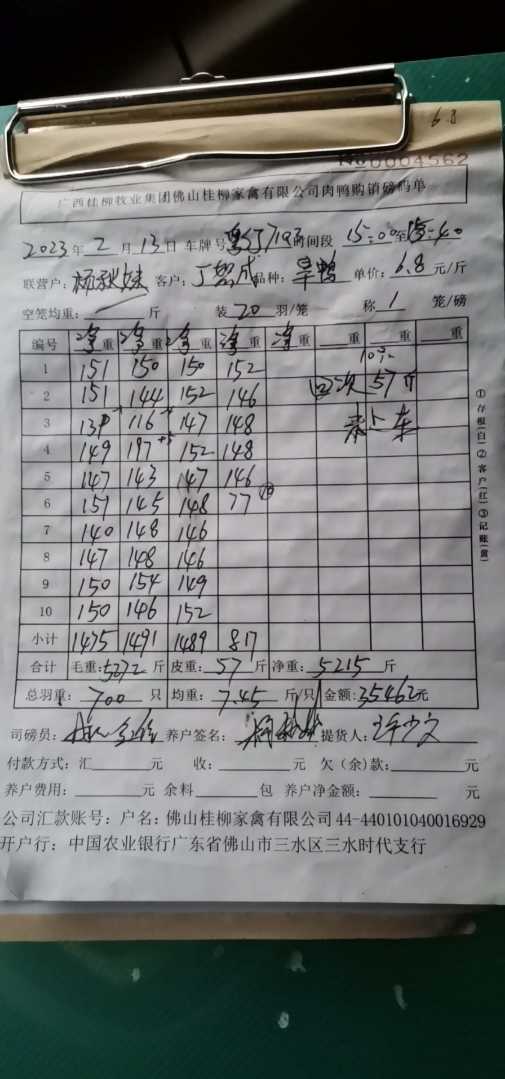 6.8
No 0004562
广西桂柳牧业集团佛山桂柳家禽有限公司肉鸭购销磅码单
2023年 2 月 13 日 车牌号 时间段 15:00至
联营户: 客户: 品种: 旱鸭 单价: 6.8 元/斤
空笼均重: 斤 装 20 羽/笼 称 1 笼/磅
编号 净重 净重 净重 净重 净重 重 重 重
1 151 150 150 152 10%
2 151 144 152 146 回次 57斤
3 116 147 148 来上车
4 149 197 +5 152 148
5 147 143 147 146
6 151 145 148 77
7 140 148 146
8 147 148 146
9 150 154 149
10 150 146 152
小计 1475 1491 1489 817
合计 毛重: 5272 斤 皮重: 57 斤 净重: 5215 斤
总羽重: 700 只 均重: 7.45 斤/只 金额: 35462元
司磅员: 养户签名: 提货人:
付款方式: 汇 元 收: 元 欠(余)款: 元
养户费用: 元 余料 包 养户净金额: 元
公司汇款账号: 户名: 佛山桂柳家禽有限公司 44-440101040016929
开户行: 中国农业银行广东省佛山市三水区三水时代支行
①存根(白)②客户(红)③记账(黄)